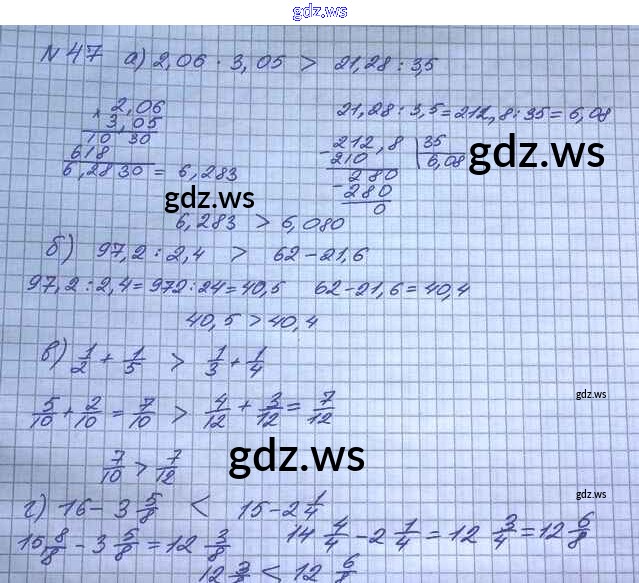 gdz.ws
N 47 а) 2,06 · 3,05 > 21,28 : 3,5
2,06
× 3,05
10 30
618
6,2830 = 6,283
21,28 : 3,5 = 212,8 : 35 = 6,08
- 212,8 | 35
210 | 6,08
- 280
280
0
gdz.ws
gdz.ws
6,283 > 6,080
б) 97,2 : 2,4 > 62 - 21,6
97,2 : 2,4 = 972 : 24 = 40,5 62 - 21,6 = 40,4
40,5 > 40,4
в) 1/2 + 1/5 > 1/3 + 1/4
gdz.ws
5/10 + 2/10 = 7/10 > 4/12 + 3/12 = 7/12
7/10 > 7/12
gdz.ws
г) 16 - 3 5/8 < 15 - 2 1/4
gdz.ws
15 8/8 - 3 5/8 = 12 3/8 14 4/4 - 2 1/4 = 12 3/4 = 12 6/8
12 3/8 < 12 6/8
gdz.ws